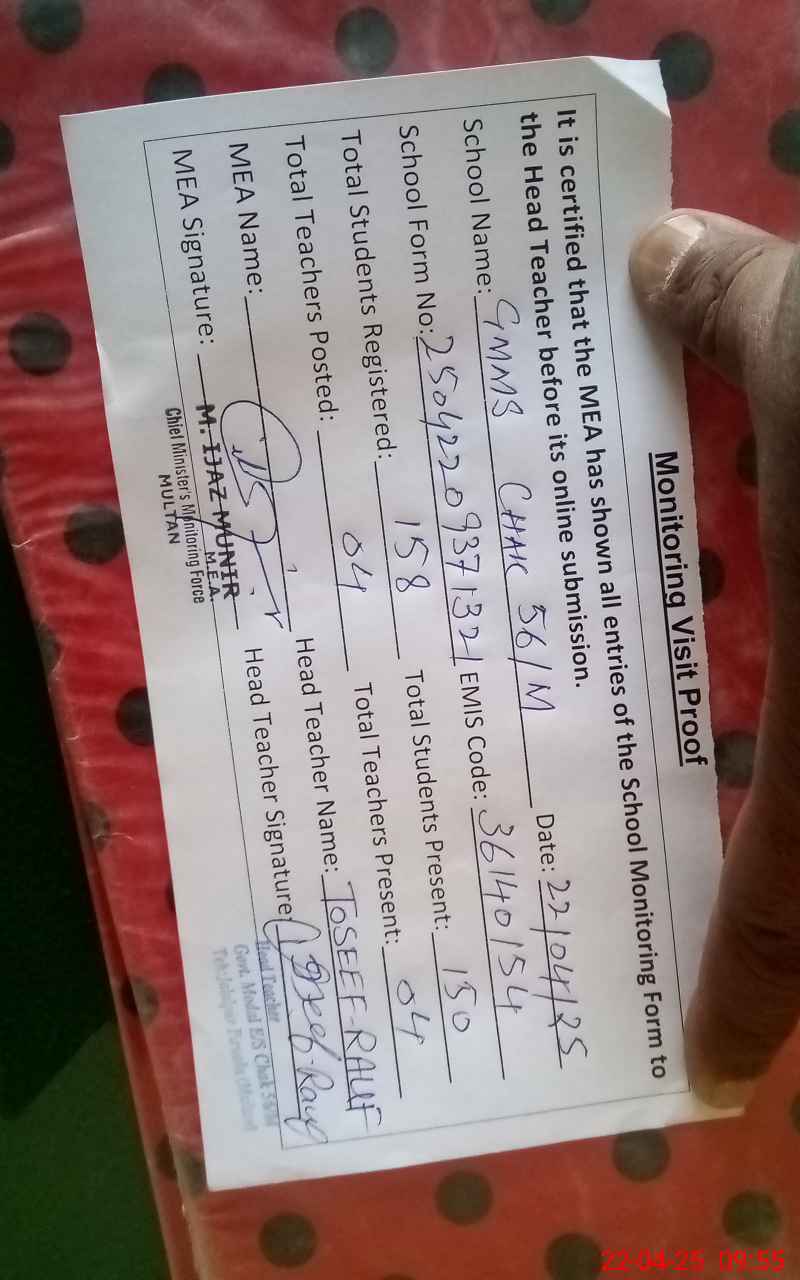 Monitoring Visit Proof
It is certified that the MEA has shown all entries of the School Monitoring Form to
the Head Teacher before its online submission.
School Name: GMMS CHAK 56/M Date: 22/04/25
School Form No: 25042209371321 EMIS Code: 36140154
Total Students Registered: 158 Total Students Present: 150
Total Teachers Posted: 04 Total Teachers Present: 04
MEA Name: Head Teacher Name: TOSEEF-RAUF
MEA Signature: Head Teacher Signature: Toseef Rauf
M. IJAZ MUNIR
M.E.A.
Chief Minister's Monitoring Force
MULTAN
Head Teacher
Govt. Model E/S Chak 56/M
22-04-25 09:55